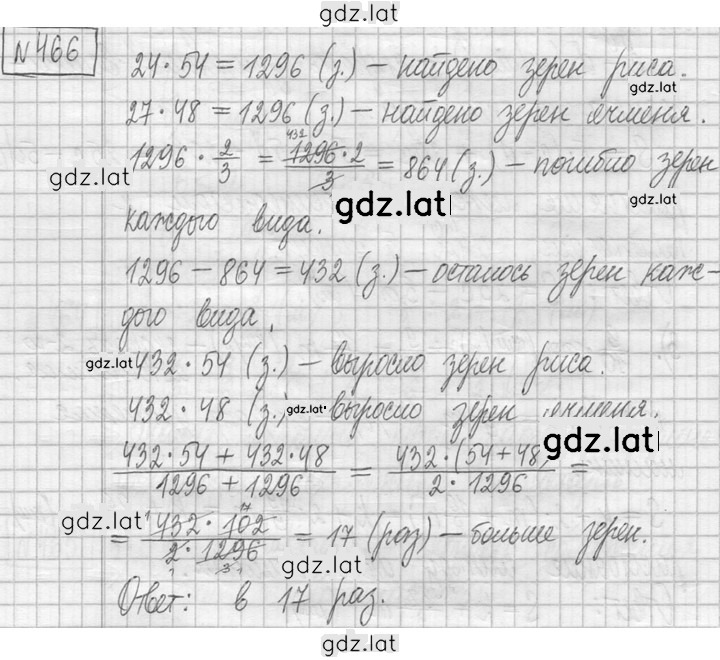 gdz.lat
№466
24 · 54 = 1296 (з.) – найдено зерен риса.
gdz.lat
27 · 48 = 1296 (з.) – найдено зерен ячменя.
gdz.lat
1296 · 2/3 = 1296 · 2 / 3 = 864 (з.) – погибло зерен
432
gdz.lat
gdz.lat
gdz.lat
каждого вида.
1296 – 864 = 432 (з.) – осталось зерен каж-
дого вида.
gdz.lat
432 · 54 (з.) – выросло зерен риса.
432 · 48 (з.) выросло зерен ячменя.
gdz.lat
gdz.lat
432 · 54 + 432 · 48 / 1296 + 1296 = 432 · (54 + 48) / 2 · 1296 =
= 432 · 102 / 2 · 1296 = 17 (раз) – больше зерен.
gdz.lat
gdz.lat
Ответ: в 17 раз.
gdz.lat